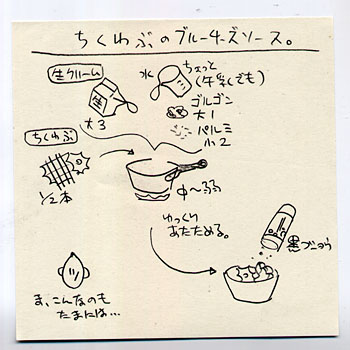 ちくわぶのブルーチーズソース。
生クリーム
生
大3
水
ちょっと
(牛乳でも)
ゴルゴン
大1
パルミ
小2
ちくわぶ
1/2本
中〜弱
ゆっくり
あたためる。
黒コショウ
ま、こんなのも
たまには…